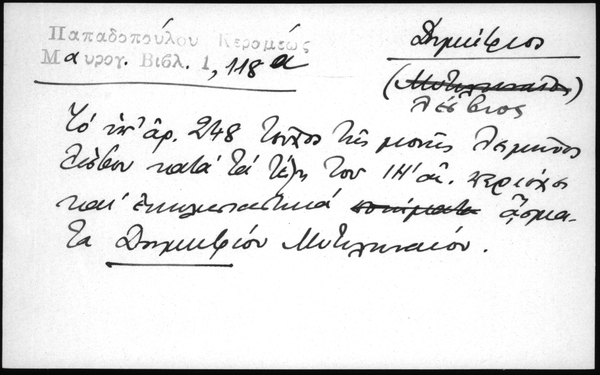 Παπαδοπούλου Κεραμέως
Μαυρογ. Βιβλ. 1, 118α
Δημήτριος
(Μυτιληναῖος)
Λέσβιος
Τό ὑπ' ἀρ. 248 τεῦχος τῆς μονῆς Λειμῶνος
Λέσβου κατά τά τέλη τοῦ ΙΗ' αἰ. περιέχει
καί ἐκκλησιαστικά ποιήματα ᾄσμα-
τα Δημητρίου Μυτιληναίου.